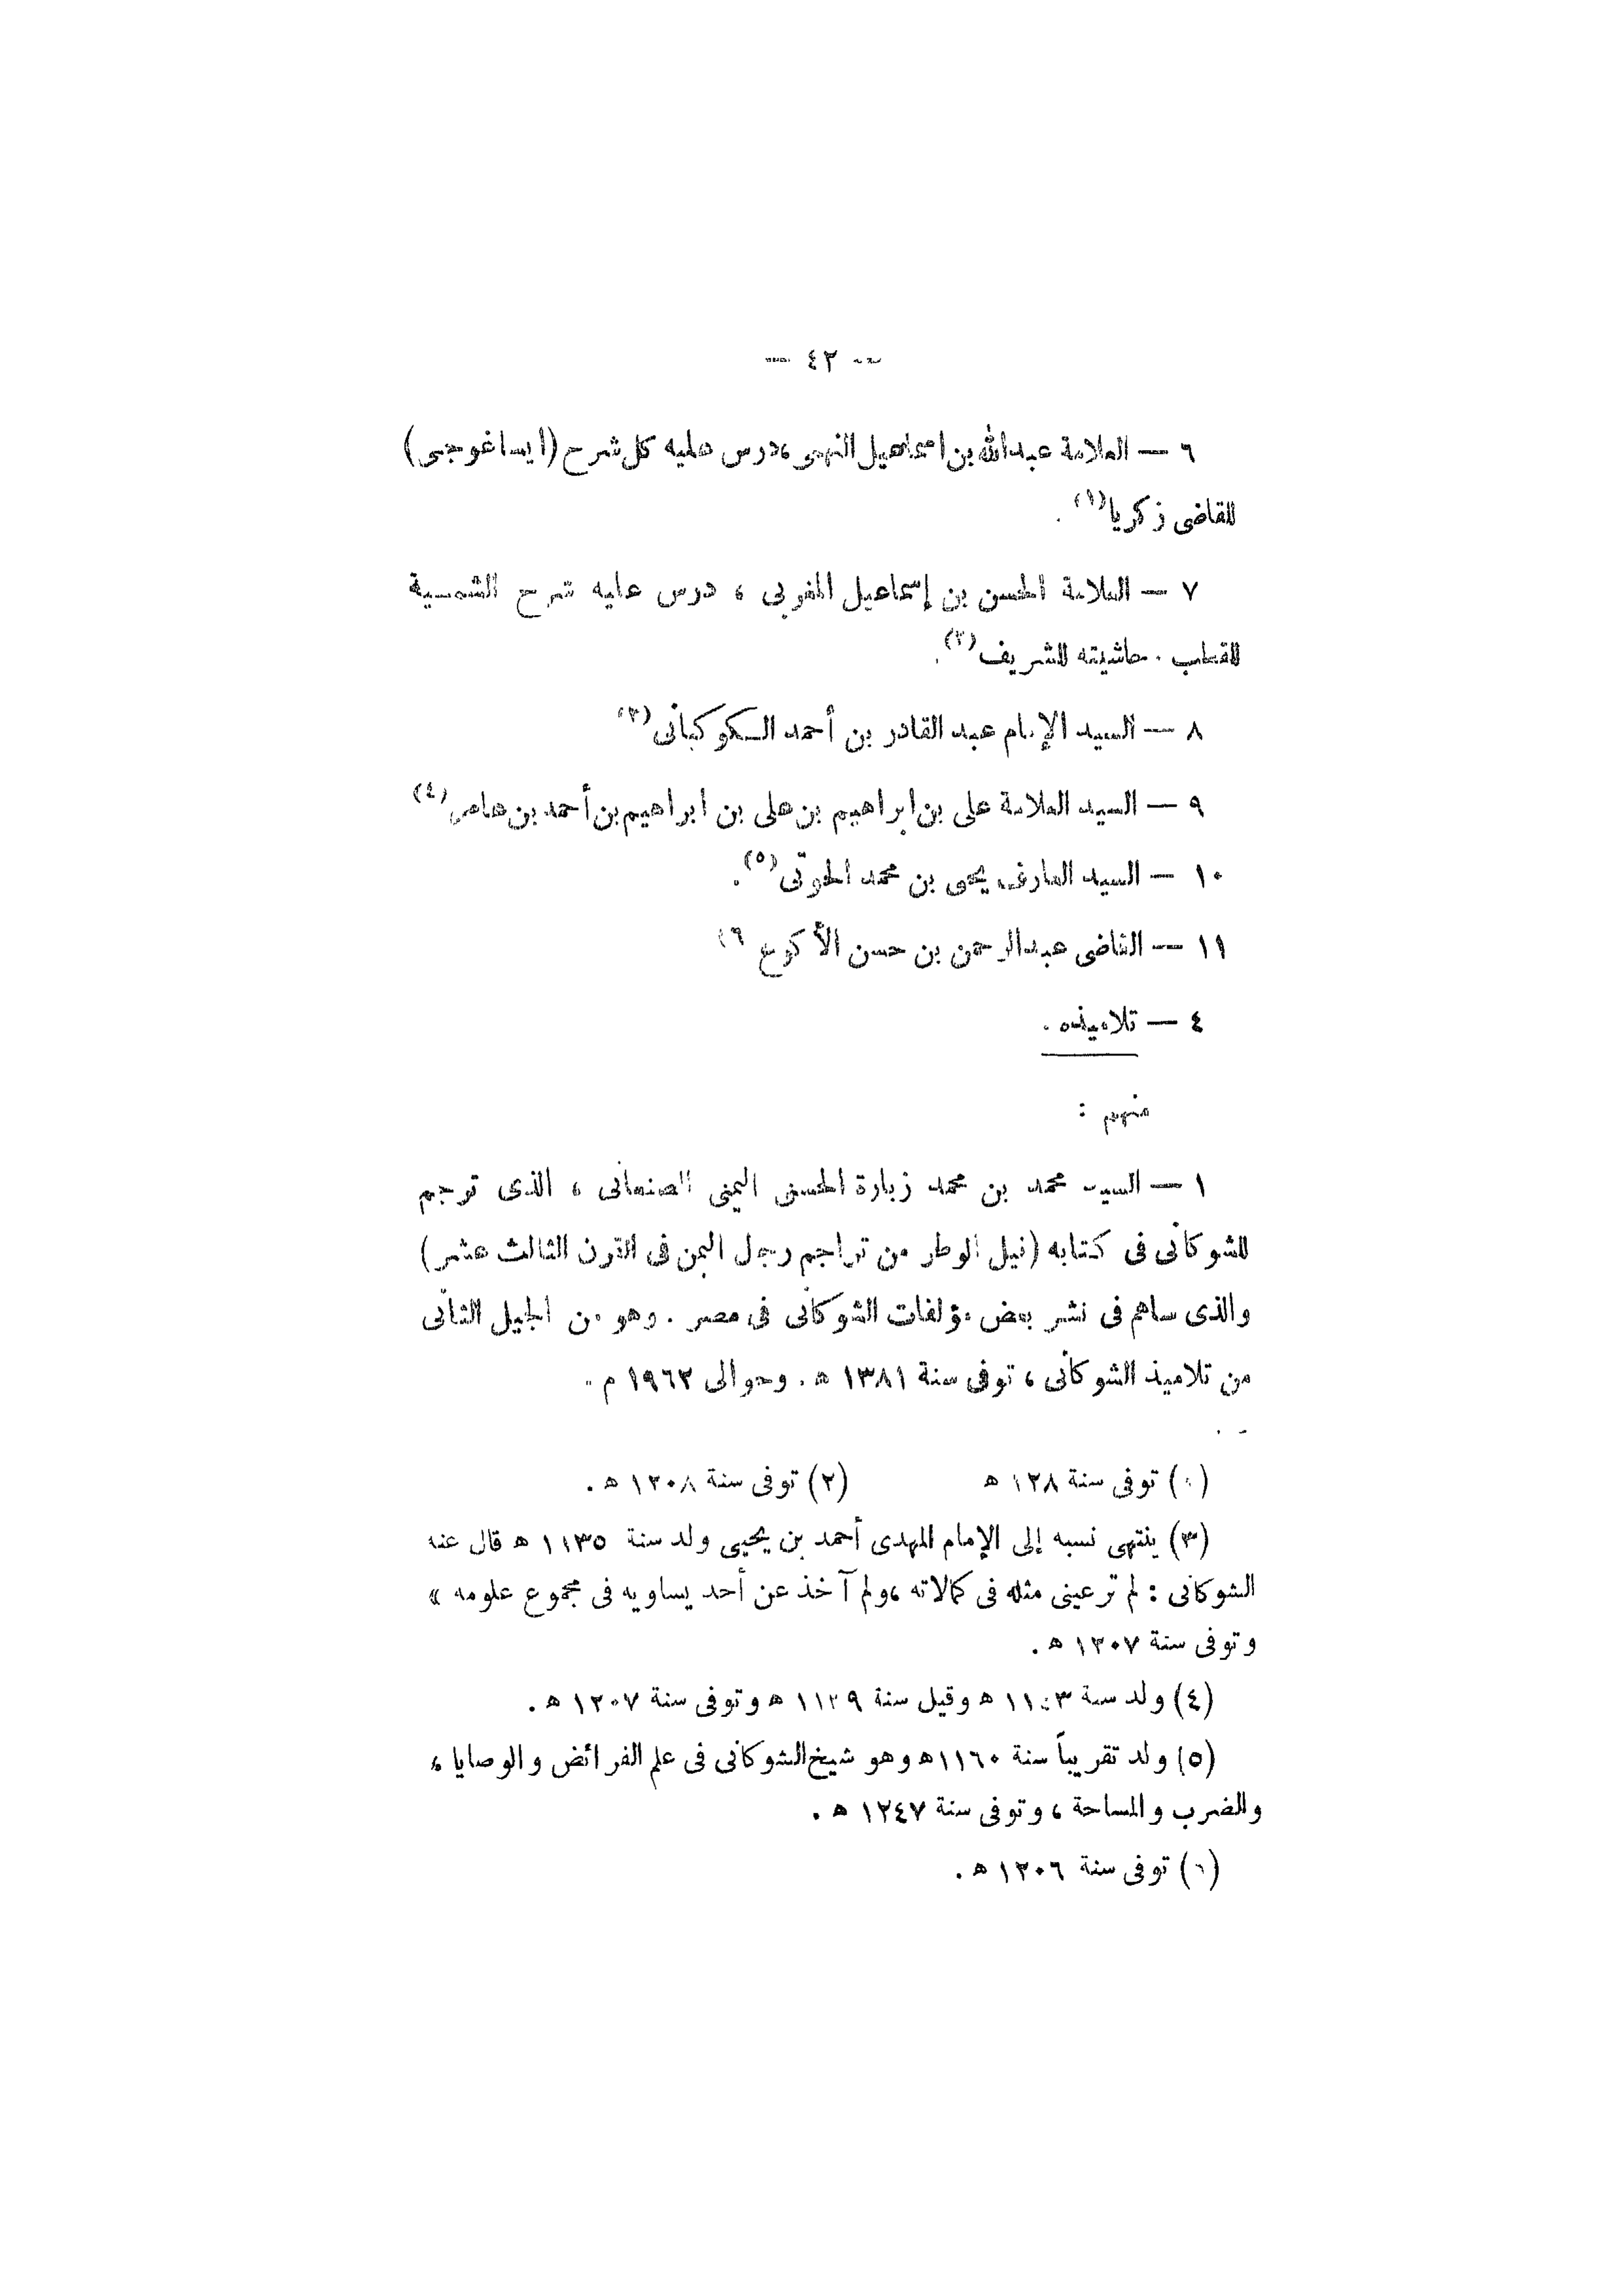 — ٤٢ —
٦ — العلامة عبدالله بن اسماعيل النهمى ،درس عليه كل شرح (ايساغوجى)
للقاضى زكريا(١) .
٧ — العلامة الحسن بن إسماعيل المغربى ، درس عليه شرح الشمسية
للقطب . حاشيته للشريف(٢).
٨ — السيد الإمام عبد القادر بن أحمد الكوكبانى(٣)
٩ — السيد العلامة على بن ابراهيم بن على بن ابراهيم بن أحمد بن عامر(٤)
١٠ — السيد العارف يحيى بن محمد الحوثى(٥).
١١ — القاضى عبدالرحمن بن حسن الأكوع (٦)
٤ — تلاميذه .
منهم :
١ — السيد محمد بن محمد زبارة الحسنى اليمنى الصنعانى ، الذى ترجم
للشوكانى فى كتابه (نيل الوطر من تراجم رجال اليمن فى القرن الثالث عشر)
والذى ساهم فى نشر بعض مؤلفات الشوكانى فى مصر . وهو من الجيل الثانى
من تلاميذ الشوكانى ، توفى سنة ١٣٨١ ه . وحوالى ١٩٦٢ م .
(١) توفى سنة ١٢٨ ه (٢) توفى سنة ١٢٠٨ ه .
(٣) ينتهى نسبه إلى الإمام المهدى أحمد بن يحيى ولد سنة ١١٣٥ ه قال عنه
الشوكانى : لم تر عينى مثله فى كمالاته ،ولم آخذ عن أحد يساويه فى مجموع علومه »
وتوفى سنة ١٢٠٧ ه .
(٤) ولد سنة ه وقيل سنة ه وتوفى سنة ١٢٠٧ ه .
(٥) ولد تقريباً سنة ١١٦٠ ه وهو شيخ الشوكانى فى علم الفرائض والوصايا ،
والضرب والمساحة ، وتوفى سنة ١٢٤٧ ه .
(٦) توفى سنة ١٢٠٦ ه .